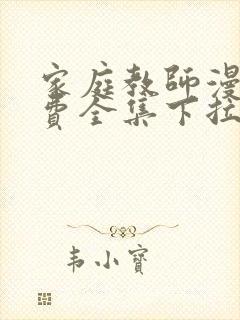 家庭教師漫
費全集下拉
韦小寶